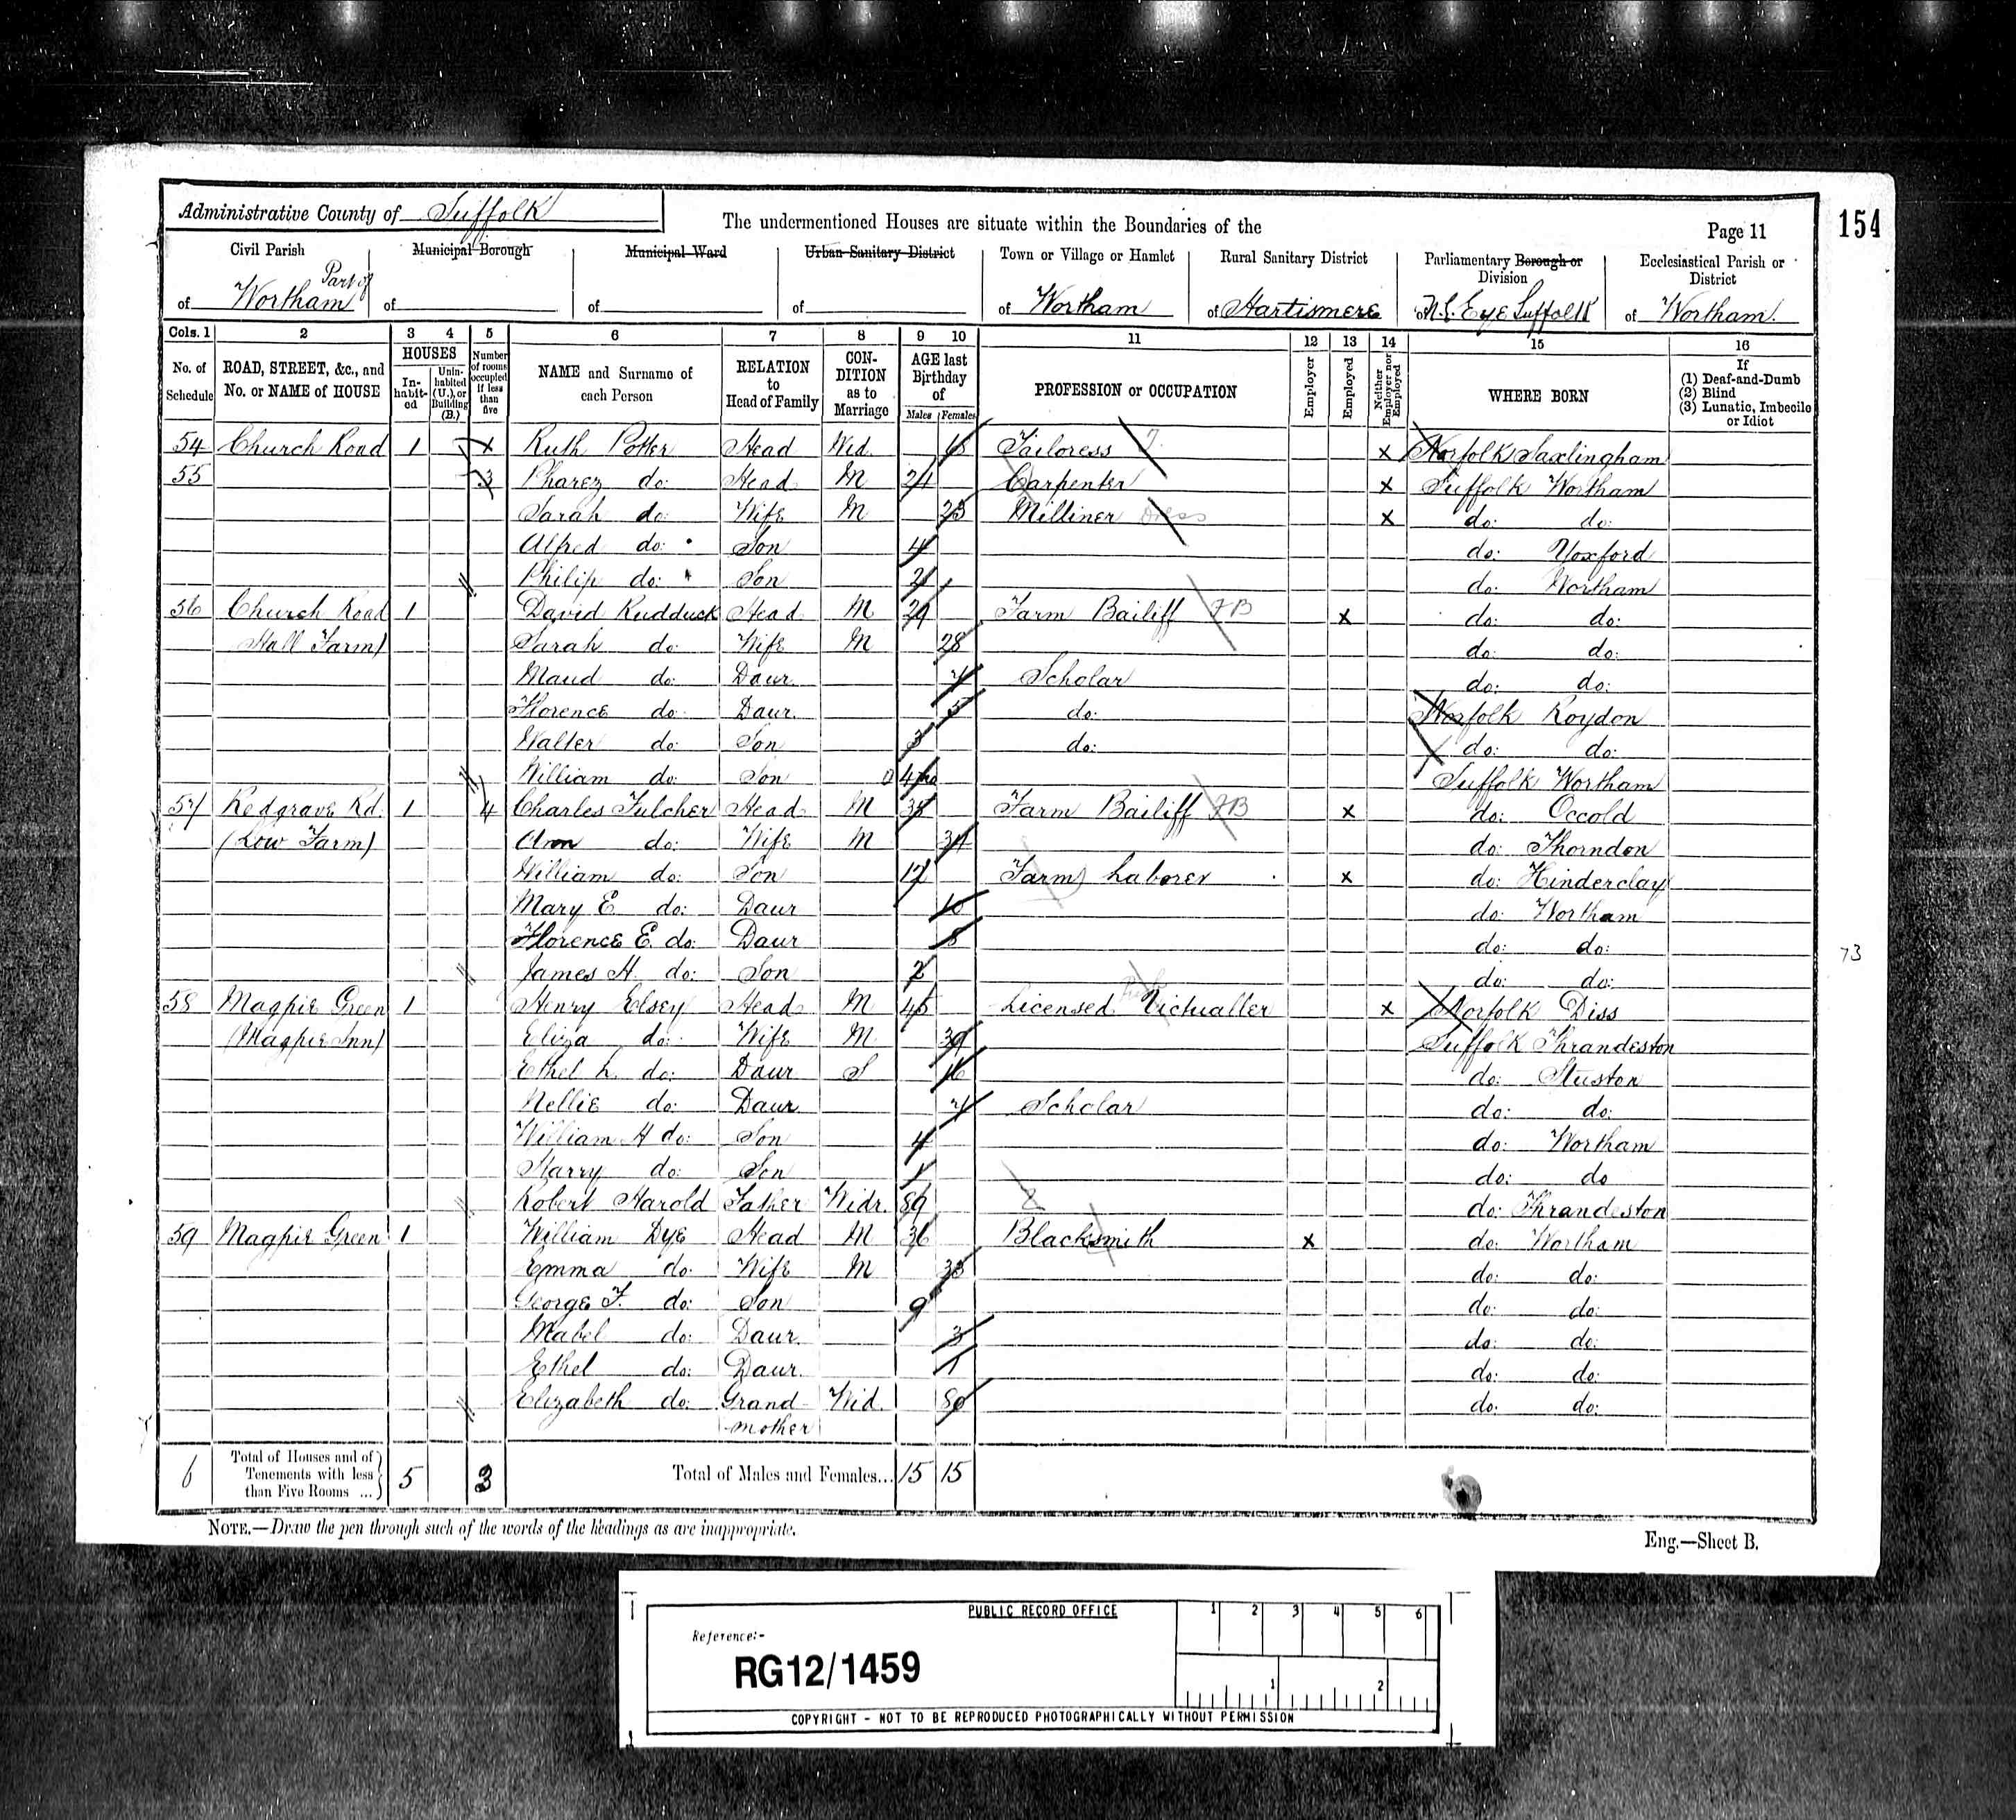 Administrative County of Suffolk
The undermentioned Houses are situate within the Boundaries of the
Page 11
154
Civil Parish
of Part of Wortham
Municipal Borough
of
Municipal Ward
of
Urban Sanitary District
of
Town or Village or Hamlet
of Wortham
Rural Sanitary District
of Hartismere
Parliamentary Borough or Division
of N.E. Eye Suffolk
Ecclesiastical Parish or District
of Wortham.
Cols. 1 2 3 4 5 6 7 8 9 10 11 12 13 14 15 16
No. of Schedule
ROAD, STREET, &c., and No. or NAME of HOUSE
HOUSES
In-habit-ed
Unin-habited (U.), or Building (B.)
Number of rooms occupied if less than five
NAME and Surname of each Person
RELATION to Head of Family
CON-DITION as to Marriage
AGE last Birthday of
Males Females
PROFESSION or OCCUPATION
Employer
Employed
Neither Employer nor Employed
WHERE BORN
If
(1) Deaf-and-Dumb
(2) Blind
(3) Lunatic, Imbecile or Idiot
54 Church Road 1 Ruth Potter Head Wid. Tailoress x Norfolk Saxlingham
55 3 Pharez do: Head M 24 Carpenter x Suffolk Wortham
Sarah do: Wife M 23 Milliner Dress x do: do:
Alfred do: Son 4 do: Yoxford
Philip do: Son 2 do: Wortham
56 Church Road 1 David Rudduck Head M 29 Farm Bailiff FB x do: do:
Hall Farm) Sarah do: Wife M 28 do: do:
Maud do: Daur. 7 Scholar do: do:
Florence do: Daur. 5 do: Norfolk Roydon
Walter do: Son 3 do: do: do:
William do: Son 4mo Suffolk Wortham
57 Redgrave Rd. 1 4 Charles Fulcher Head M 38 Farm Bailiff FB x do: Occold
(Low Farm) Ann do: Wife M do: Thorndon
William do: Son 17 Farm Laborer x do: Hinderclay
Mary E. do: Daur 10 do: Wortham
Florence E. do: Daur 8 do: do:
James H. do: Son 2 do: do:
73
58 Magpie Green 1 Henry Elsey Head M 45 Licensed Victualler x Norfolk Diss
(Magpie Inn) Eliza do: Wife M 39 Suffolk Thrandeston
Ethel L. do: Daur S 16 do: Stuston
Nellie do: Daur. 7 Scholar do: do:
William H do: Son 4 do: Wortham
Harry do: Son 1 do: do
Robert Harold Father Widr. 89 do: Thrandeston
59 Magpie Green 1 William Dye Head M 36 Blacksmith x do: Wortham
Emma do: Wife M 33 do: do:
George F. do: Son 9 do: do:
Mabel do: Daur. 3 do: do:
Ethel do: Daur. 1 do: do:
Elizabeth do: Grand- Wid. 80 do: do:
mother
6 Total of Houses and of Tenements with less than Five Rooms ... 5 3 Total of Males and Females... 15 15
NOTE.—Draw the pen through such of the words of the headings as are inappropriate.
Eng.—Sheet B.
PUBLIC RECORD OFFICE
1 2 3 4 5 6
Reference:-
RG12/1459
1 2
COPYRIGHT - NOT TO BE REPRODUCED PHOTOGRAPHICALLY WITHOUT PERMISSION